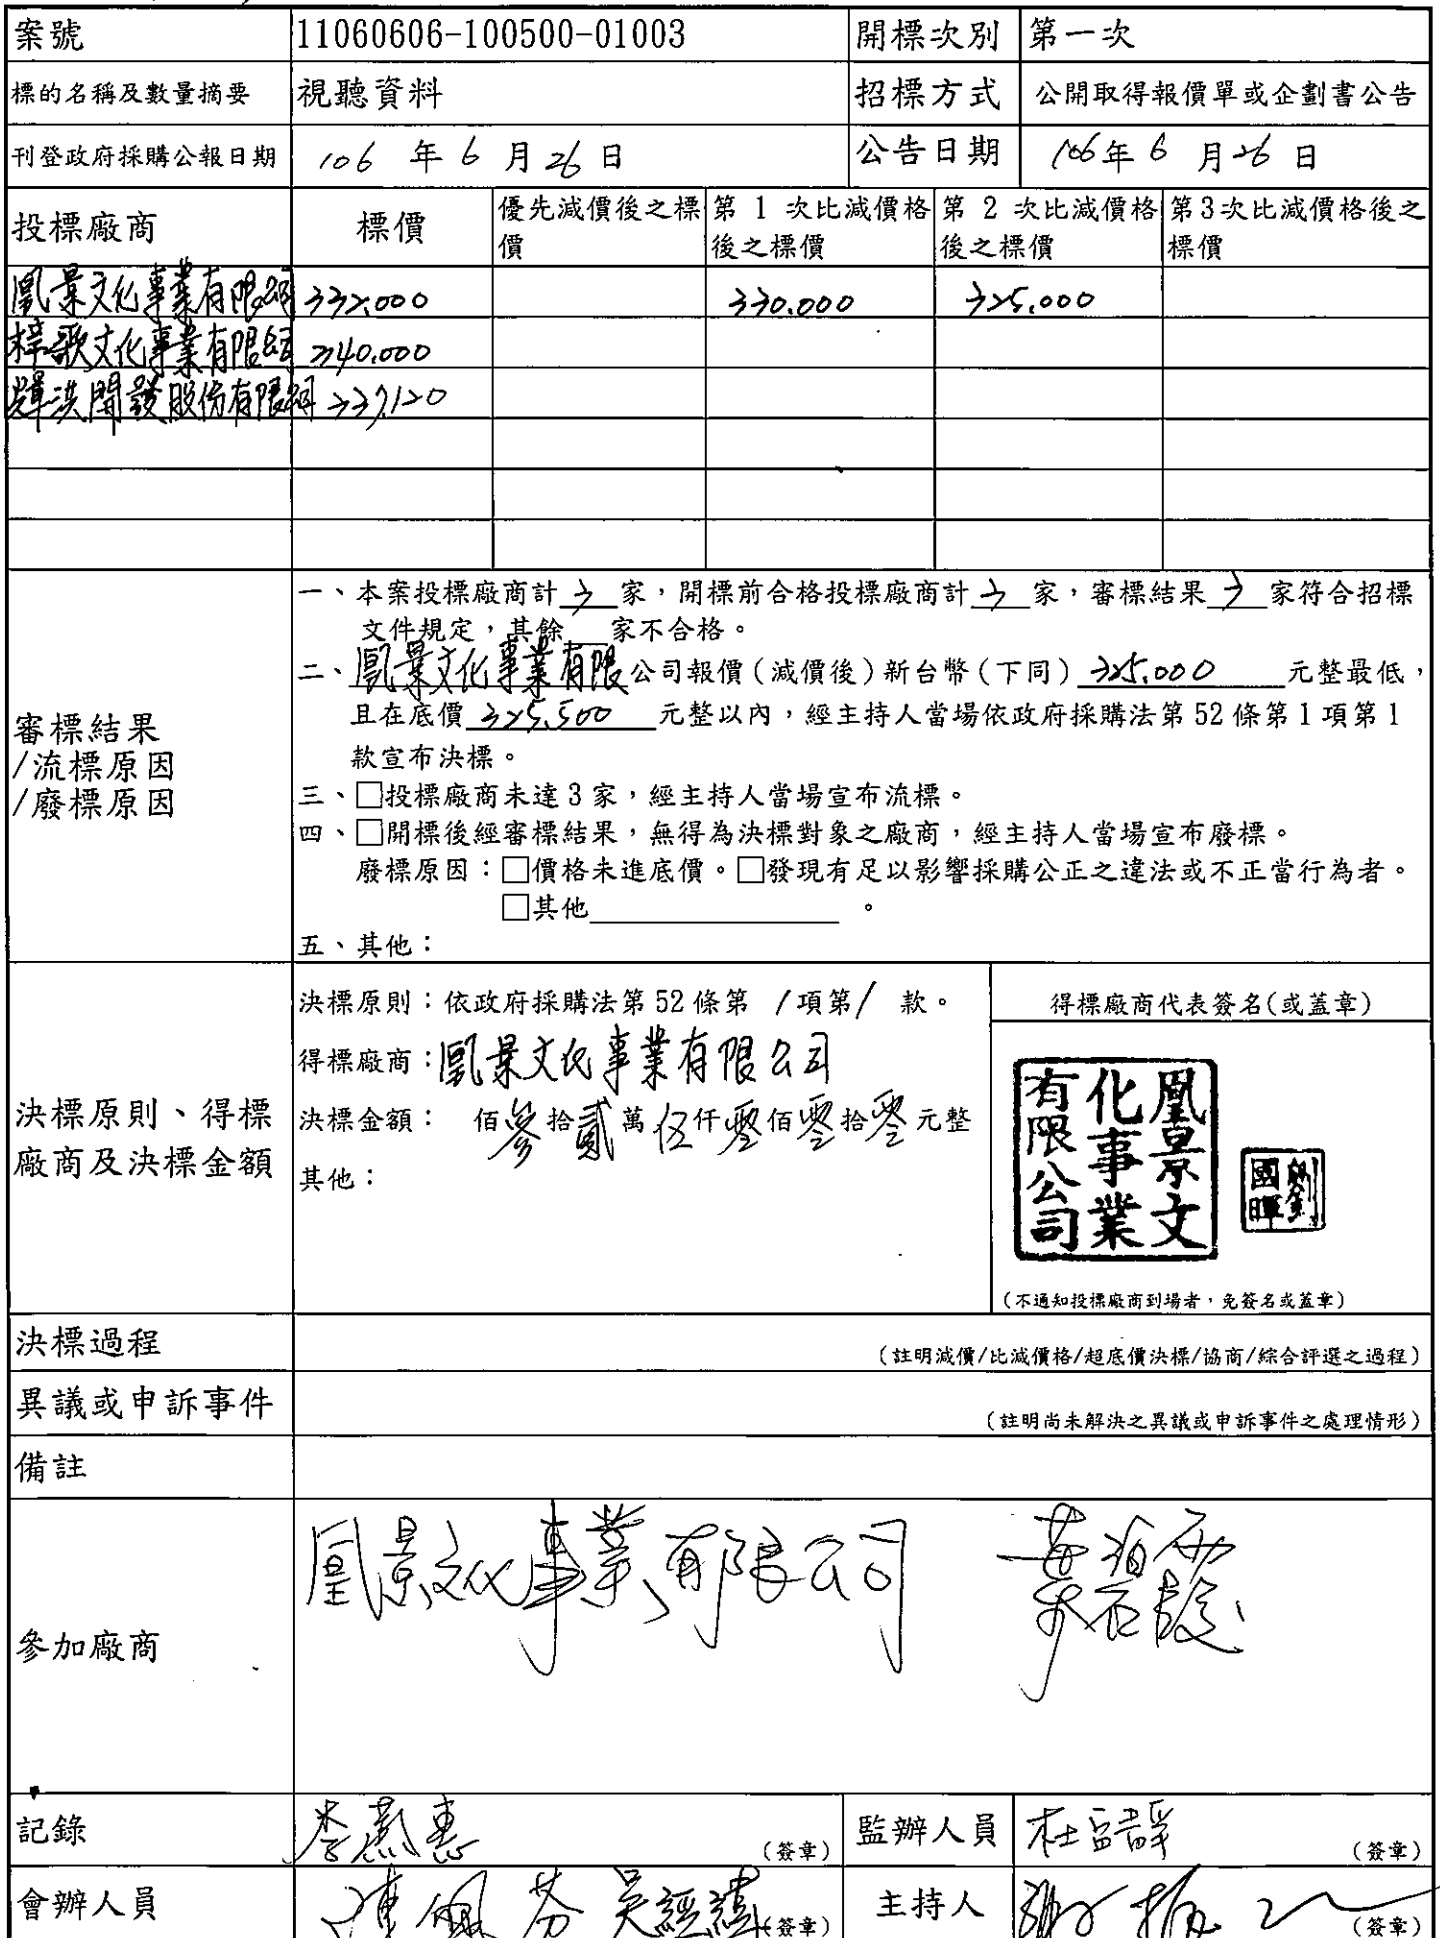 案號 11060606-100500-01003 開標次別 第一次
標的名稱及數量摘要 視聽資料 招標方式 公開取得報價單或企劃書公告
刊登政府採購公報日期 106 年 6 月 26 日 公告日期 106年 6 月 26 日
投標廠商 標價 優先減價後之標價 第 1 次比減價格後之標價 第 2 次比減價格後之標價 第3次比減價格後之標價
凰景文化事業有限公司 332,000 330,000 325,000
梓歌文化事業有限公司 340,000
輝洪開發股份有限公司 337,120
審標結果
/流標原因
/廢標原因
一、本案投標廠商計 3 家，開標前合格投標廠商計 3 家，審標結果 3 家符合招標
文件規定，其餘 家不合格。
二、凰景文化事業有限公司報價(減價後)新台幣(下同) 325,000 元整最低，
且在底價 325,500 元整以內，經主持人當場依政府採購法第 52 條第 1 項第 1
款宣布決標。
三、□投標廠商未達 3 家，經主持人當場宣布流標。
四、□開標後經審標結果，無得為決標對象之廠商，經主持人當場宣布廢標。
廢標原因：□價格未進底價。□發現有足以影響採購公正之違法或不正當行為者。
□其他 。
五、其他：
決標原則、得標
廠商及決標金額
決標原則：依政府採購法第 52 條第 1 項第 1 款。
得標廠商：凰景文化事業有限公司
決標金額： 佰參拾貳萬伍仟零佰零拾零元整
其他：
得標廠商代表簽名(或蓋章)
凰景文
化事業
有限公司
劉
國暉
(不通知投標廠商到場者，免簽名或蓋章)
決標過程 (註明減價/比減價格/超底價決標/協商/綜合評選之過程)
異議或申訴事件 (註明尚未解決之異議或申訴事件之處理情形)
備註
參加廠商 凰景文化事業有限公司
記錄 李燕惠 (簽章) 監辦人員 (簽章)
會辦人員 陳佩芬 (簽章) 主持人 (簽章)